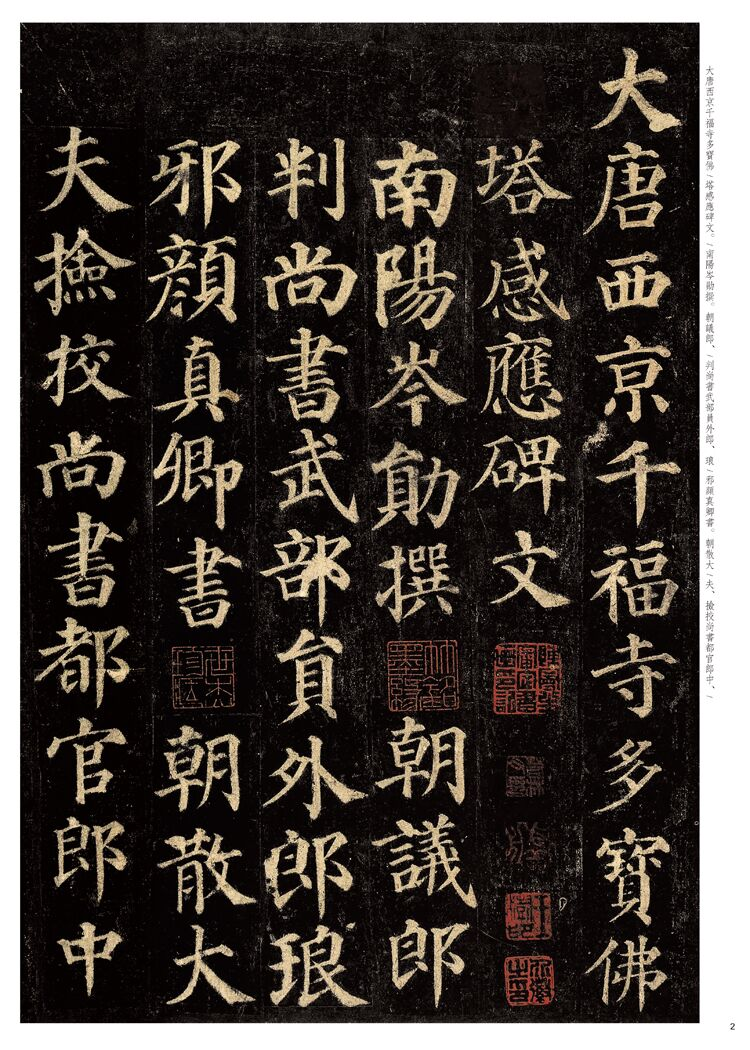 大唐西京千福寺多寶佛
塔感應碑文
南陽岑勛撰 朝議郎
判尚書武部員外郎琅
邪顏真卿書 朝散大
夫撿挍尚書都官郎中
大唐西京千福寺多寶佛/塔感應碑文。/南陽岑勛撰。朝議郎、/判尚書武部員外郎、琅/邪顏真卿書。朝散大/夫、撿挍尚書都官郎中、/
2